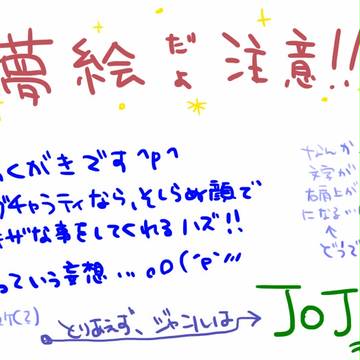 夢絵だよ注意!!
くがきです^p^
ギャラティなら、そしらぬ顔で
ザな事をしてくれるハズ!!
っていう妄想…。o0(´p`;;;
なんか
文字が
右肩上が
になる…
↑
どうで
とりあえず、ジャンルは
JOJ